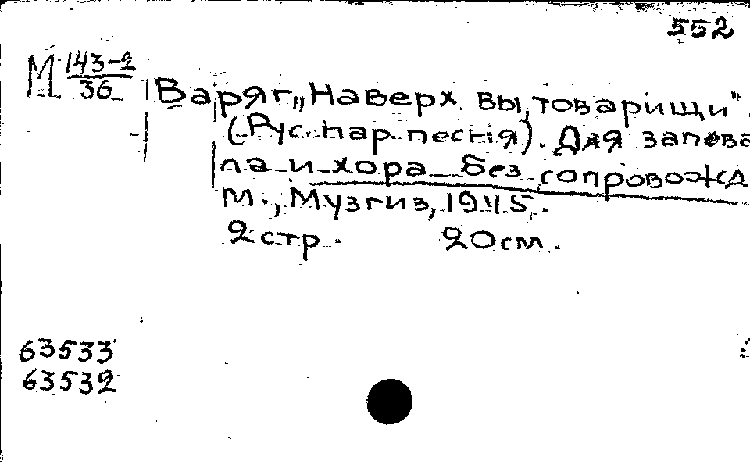 552
М 143-2
36
Варяг „Наверх вы, товарищи"
(Рус. нар. песня). Для запева
ла и хора без сопровожд
М., Музгиз, 1945.
2 стр. 20 см.
63533
63532